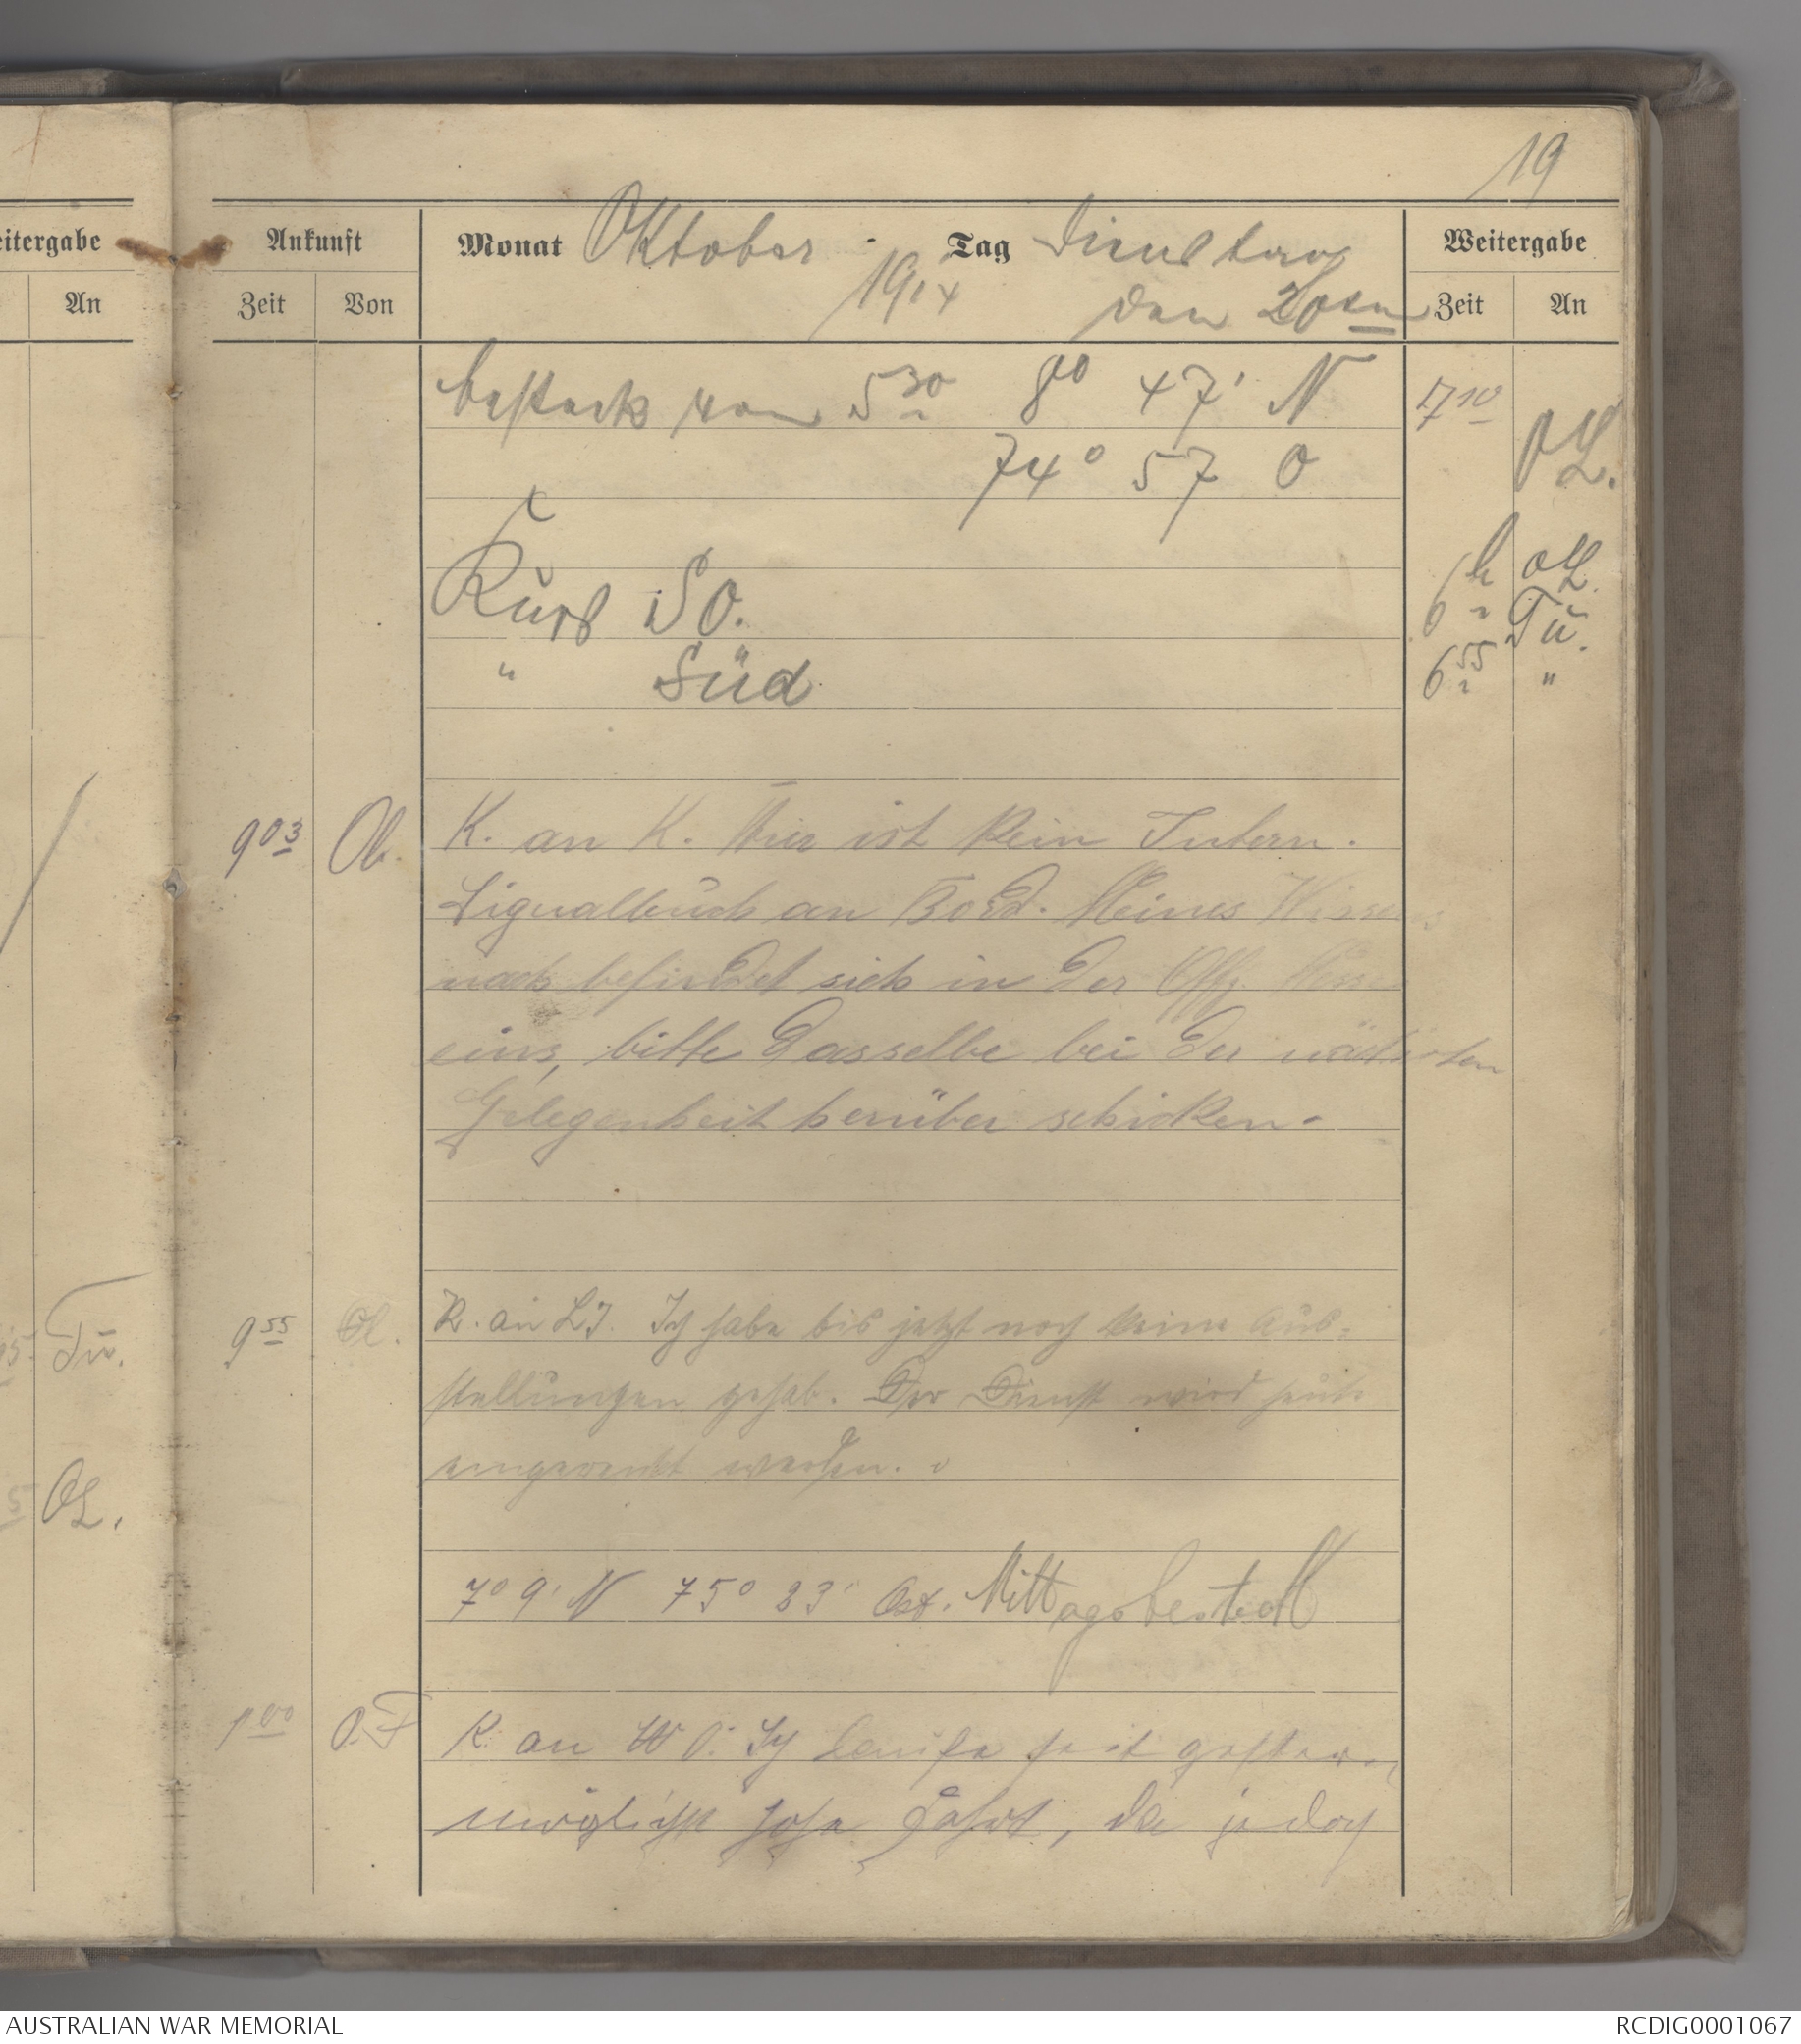 19
eitergabe
Ankunft
Monat Oktober 1914 Tag Dienstag den 20ten
Weitergabe
An
Zeit Von
Zeit An
Besteck von 5 30 8° 47' N 7 10 OL.
74° 57 O
Kurs SO. 6 h OL. Tü.
" Süd 6 55 "
9 03 Ob. K. an K. Hier ist kein Intern.
Signalbuch an Bord. Meines Wissens
nach befindet sich in der Offz. Mess
eins, bitte dasselbe bei der nächsten
Gelegenheit herüber schicken.
Tü.
9 55 Ol. K. an LI. Ich habe bis jetzt noch keine Aus-
stellungen gehab. Der Dienst wird heute
werden.
OL.
7° 9' N 75° 33' Ost. Mittagsbesteck
1 00 O.F K. an WO. Ich laufe seit gestern
möglichst hohe Fahrt, da jedoch
AUSTRALIAN WAR MEMORIAL
RCDIG0001067